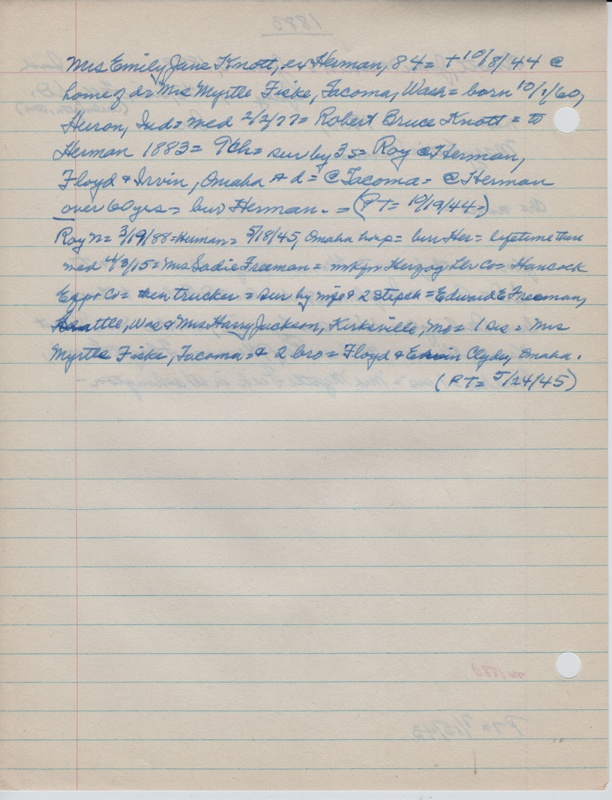 Mrs Emily Jane Knott, ex Herman, 84 = + 10/8/44 @
home of d = Mrs Myrtle Fiske, Tacoma, Wash = born 10/1/60,
Huron, Ind = med 2/2/77 = Robert Bruce Knott = to
Herman 1883 = 9Ch = sur by 3s = Roy @ Herman,
Floyd & Irvin, Omaha & d = @ Tacoma - @ Herman
over 60 yrs = bur Herman. = (PT = 10/19/44.)
Roy n = 3/19/88 = Herman = 5/18/45, Omaha hosp = bur Her = lifetime there
med 4/3/15 = Mrs Sadie Freeman = mkgr Herzog Lbr Co = Hancock
Epp & Co = then trucker = sur by wife & 2 stepch = Edward E Freeman,
Seattle, Was & Mrs Harry Jackson, Kirksville, Mo = 1 sis = Mrs
Myrtle Fiske, Tacoma = & 2 bro = Floyd & Clyde, Omaha.
(PT = 5/24/45)